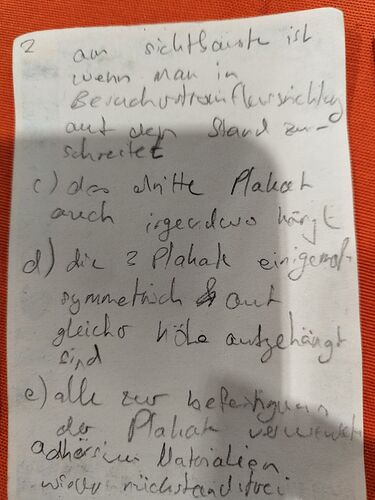 2
am sichtbarste ist
wenn man in
Besucherstromflussrichtung
auf den Stand zu-
schreitet
c) das dritte Plakat
auch irgendwo hängt
d) die 2 Plakate einigermaß-
symmetrisch & auf
gleicher Höhe aufgehängt
sind
e) alle zur befestigung
der Plakate verwendeten
adhäsiven Materialien
wieder rückstandsfrei